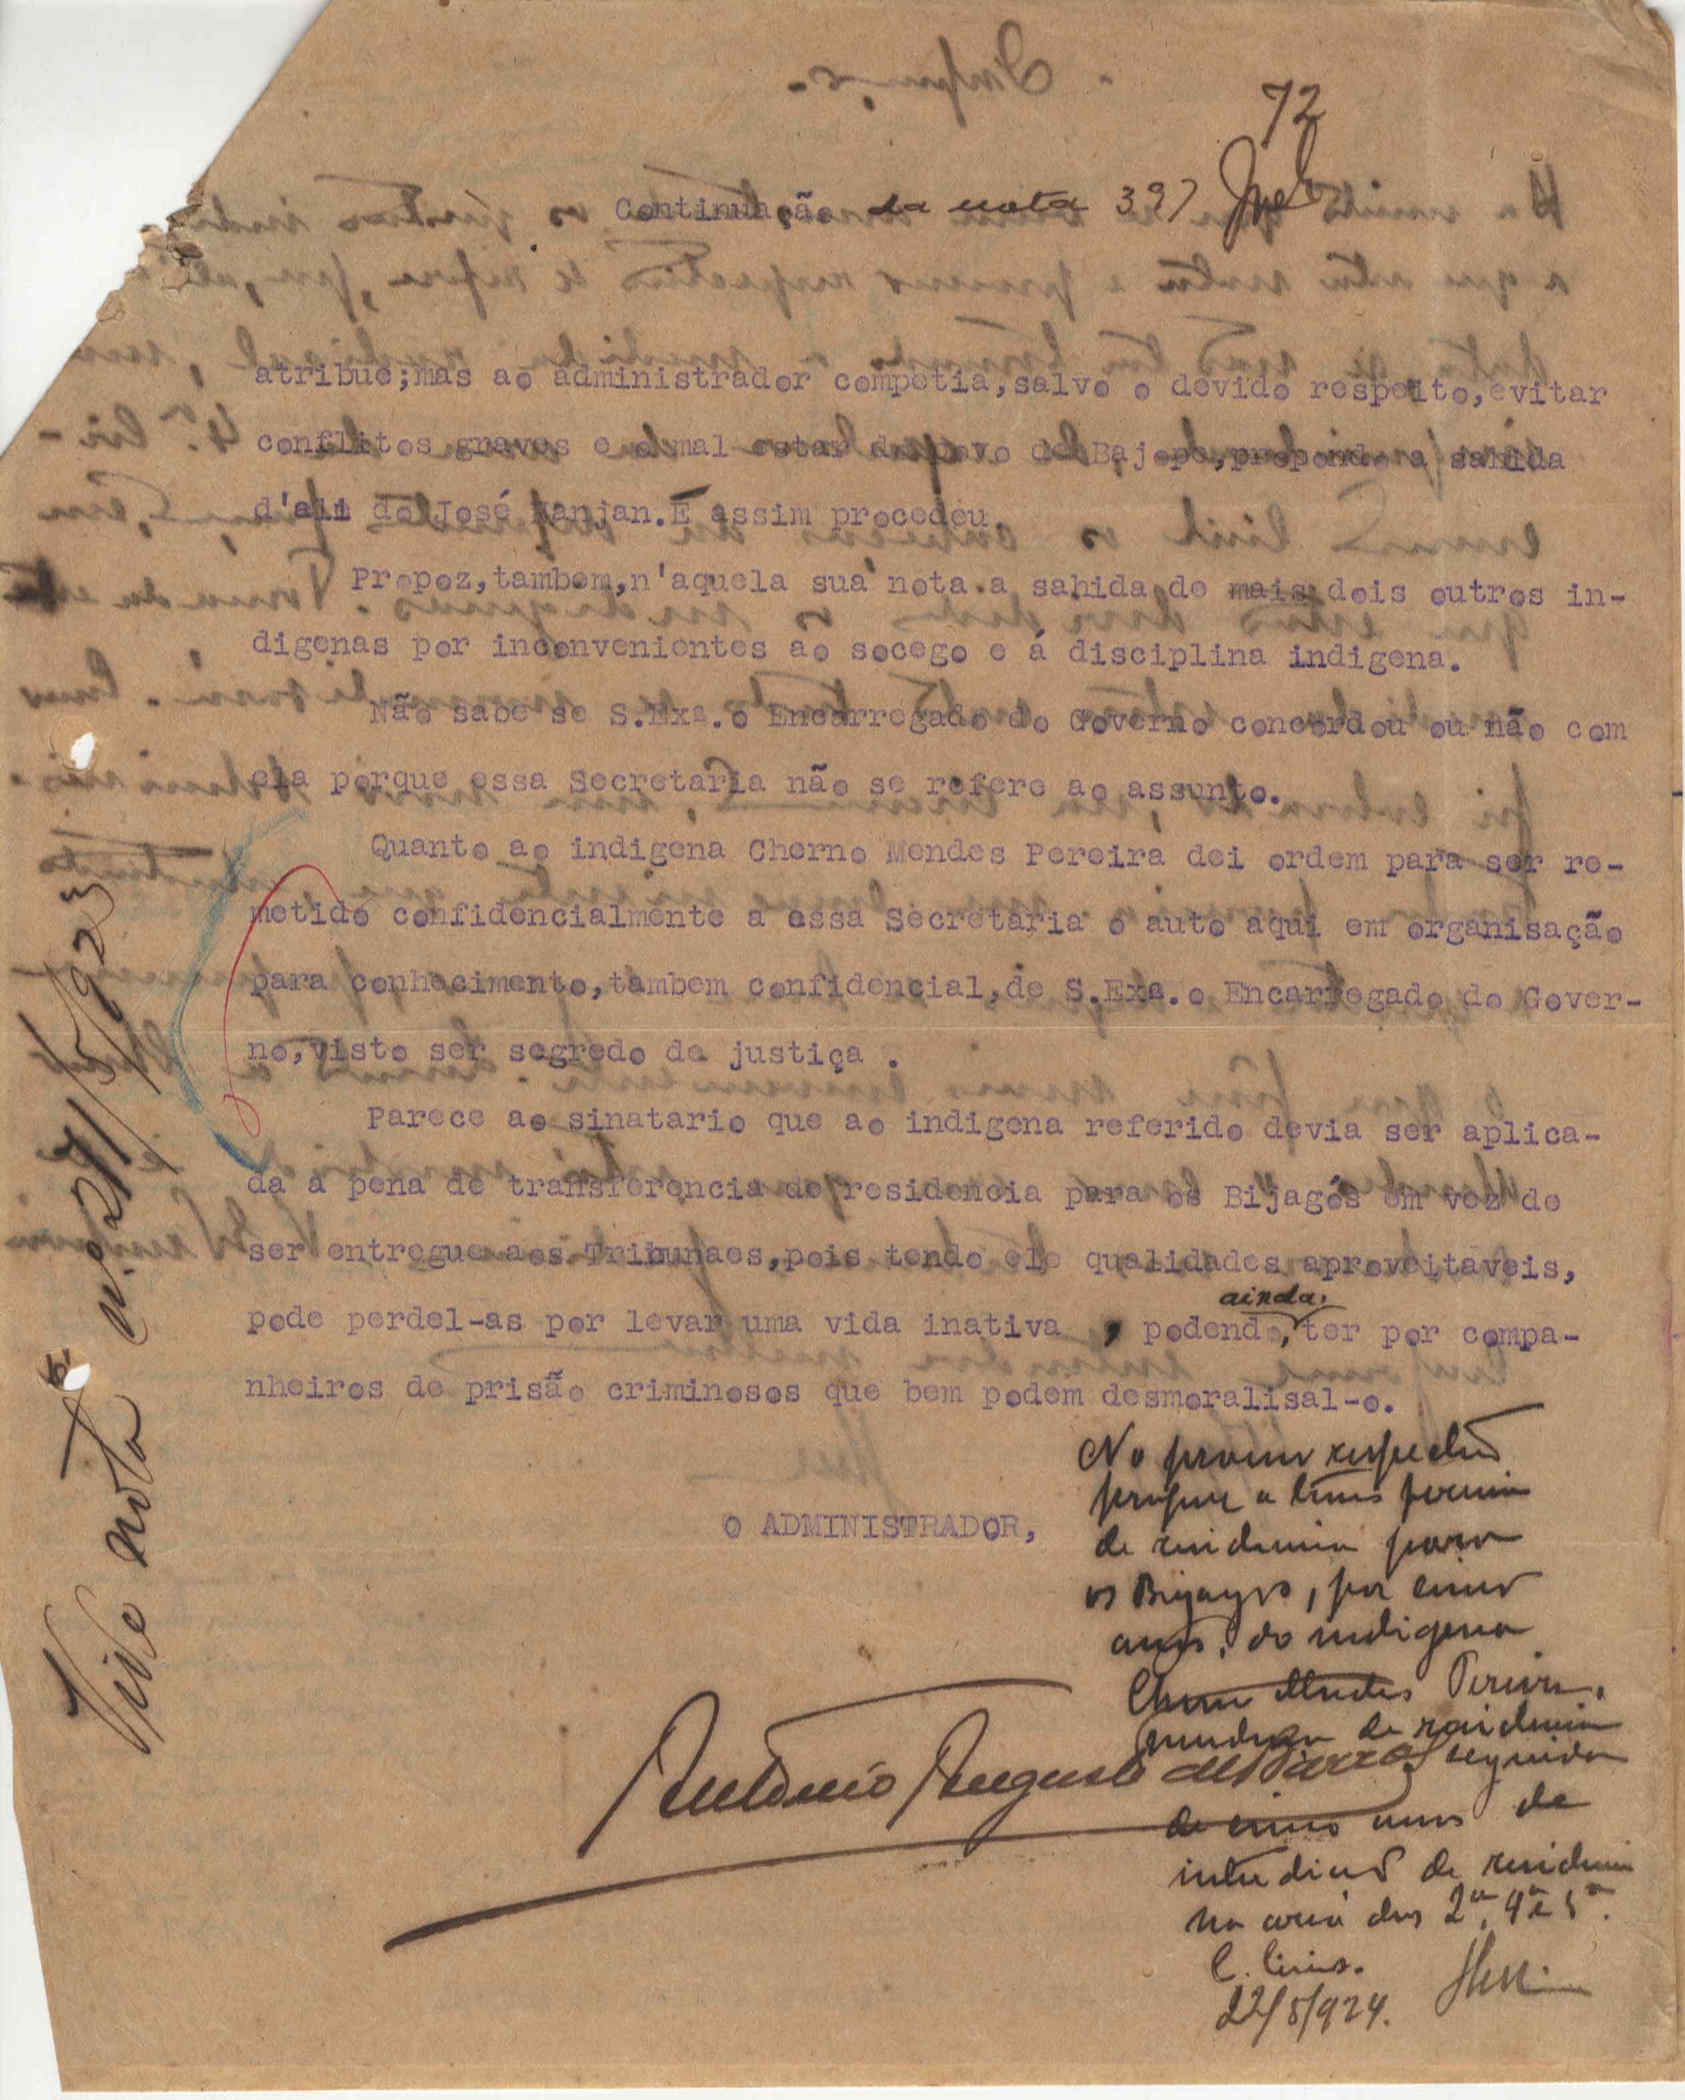 72
Continuação da nota 397
atribue;mas ao administrador competia,salvo o devido respeito,evitar
conflitos graves e o mal estar do povo de Bajope,propondo a sahida
d'ali de José Sanjan.E assim procedeu.
Propoz,tambem,n'aquela sua nota a sahida de mais dois outros in-
digenas por inconvenientes ao socego e á disciplina indigena.
Não sabe se S.Exa.o Encarregado do Governo concordou ou não com
ela porque essa Secretaria não se refere ao assunto.
Quanto ao indigena Cherno Mendes Pereira dei ordem para ser re-
metido confidencialmente a essa Secretaria o auto aqui em organisação
para conhecimento,tambem confidencial,de S.Exa.o Encarregado do Gover-
no,visto ser segredo de justiça .
Parece ao sinatario que ao indigena referido devia ser aplica-
da a pena de transferencia de residencia para os Bijagós em vez de
ser entregue aos Tribunaes,pois tendo ele qualidades aproveitaveis,
ainda,
pode perdel-as por levar uma vida inativa , podendo,ter por compa-
nheiros de prisão criminosos que bem podem desmoralisal-o.
O ADMINISTRADOR,
Antonio Augusto de Barros
No processo respectivo
propuz a
de residencia para
os Bijagos, por cinco
anos, do indigena
Cherno Mendes Pereira,
mudança de residencia seguida
de cinco anos de
interdição de residencia
na area das 2ª, 4ª e 5ª.
C. Civis.
22/5/924.
Vide nota nº 271/5/923